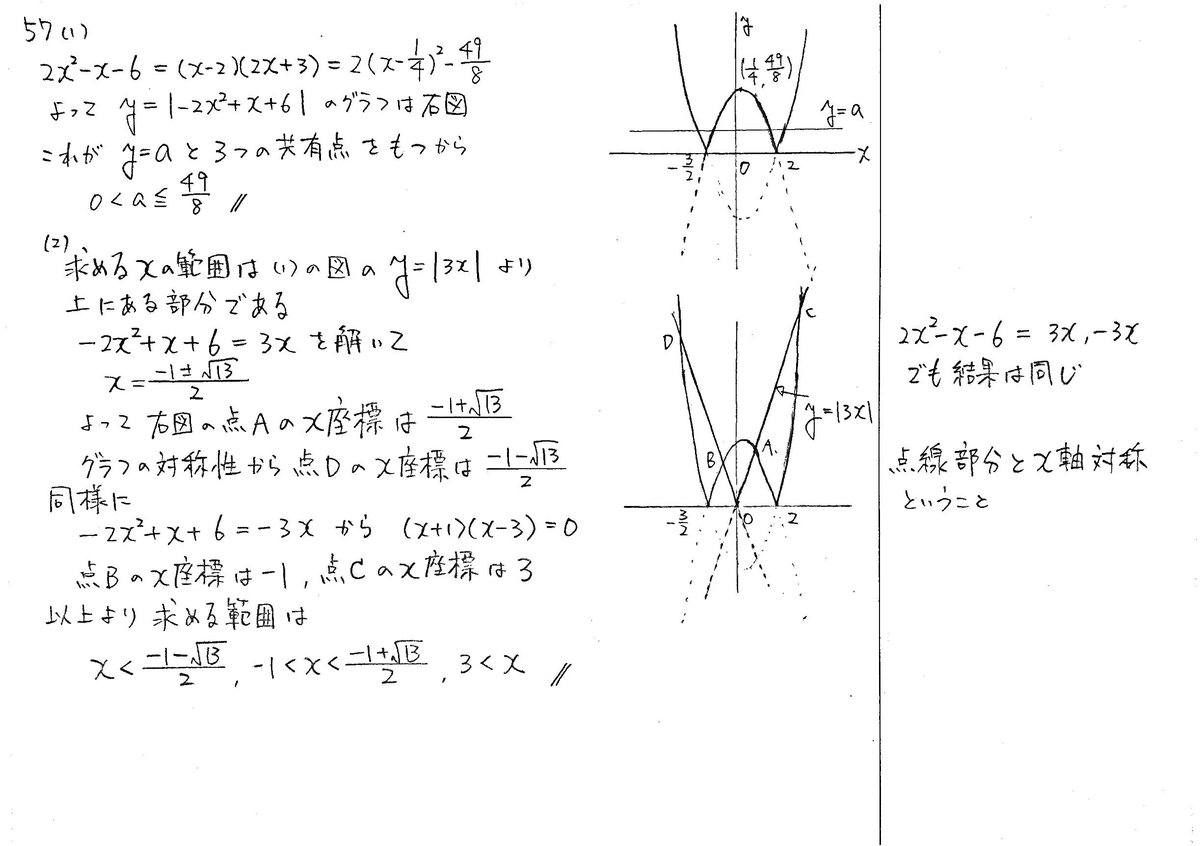 57(1)
2x²-x-6 = (x-2)(2x+3) = 2(x-1/4)²-49/8
よって y=|-2x²+x+6| のグラフは右図
これが y=aと3つの共有点をもつから
0<a≦49/8 //
(2)
求めるxの範囲は(1)の図の y=|3x| より
上にある部分である
-2x²+x+6=3x を解いて
x=(-1±√13)/2
よって 右図の点Aのx座標は (-1+√13)/2
グラフの対称性から点Dのx座標は (-1-√13)/2
同様に
-2x²+x+6=-3x から (x+1)(x-3)=0
点Bのx座標は-1, 点Cのx座標は3
以上より求める範囲は
x<(-1-√13)/2, -1<x<(-1+√13)/2, 3<x //
y
(1/4, 49/8)
y=a
-3/2 0 2 x
C
D
y=|3x|
B A
-3/2 0 2
2x²-x-6 = 3x, -3x
でも結果は同じ
点線部分とx軸対称
ということ